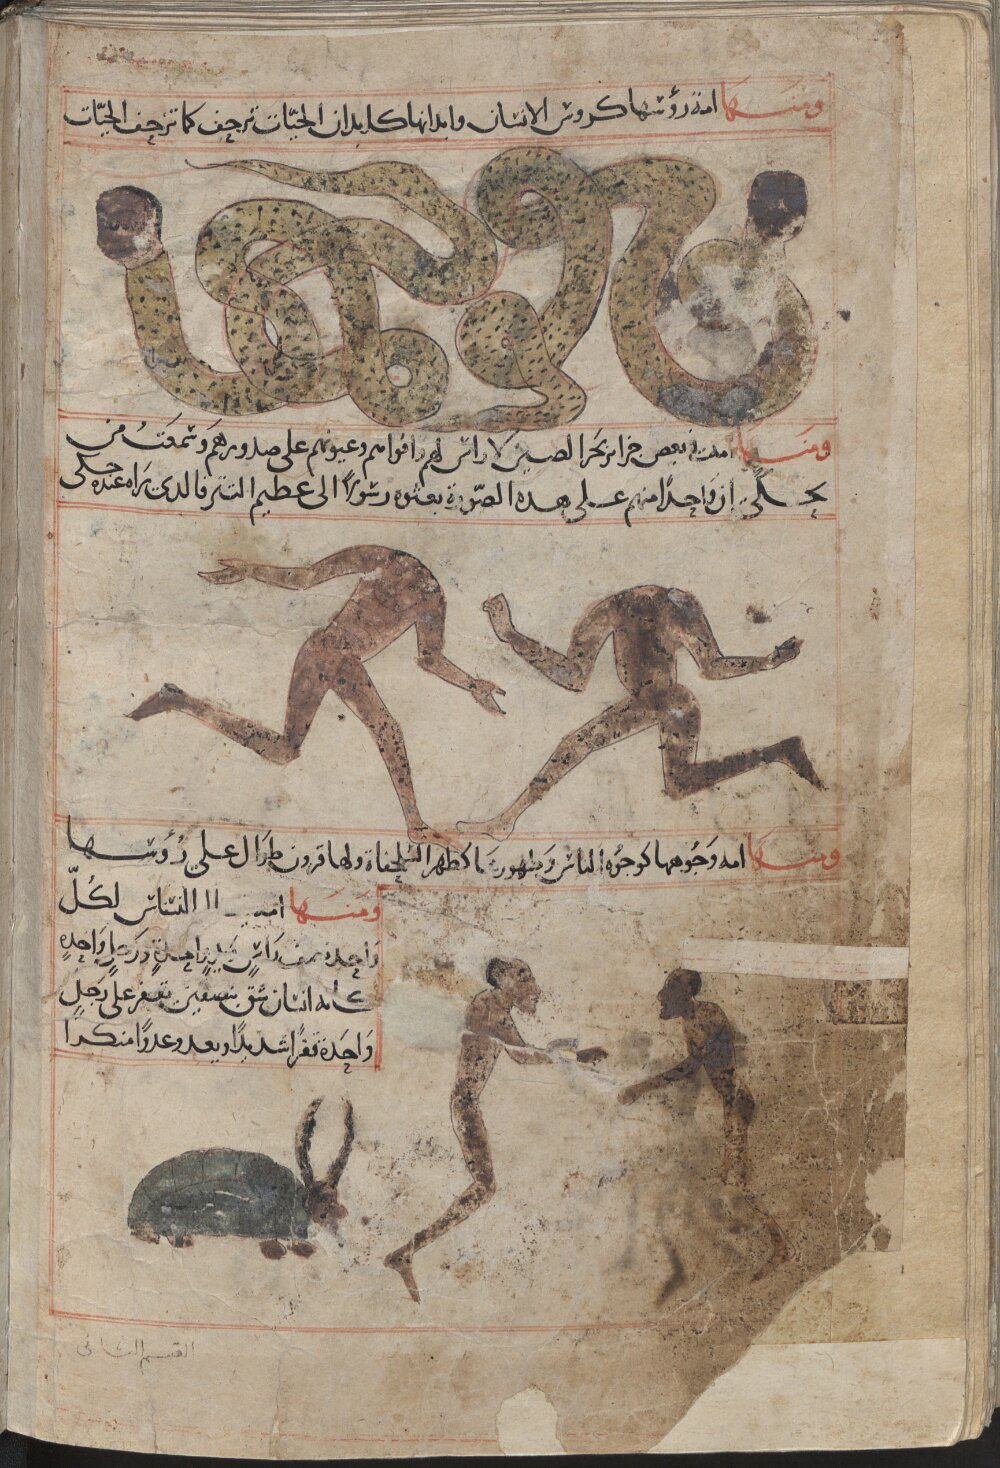 ومنها امة رؤسها كروس الانسان وابدانها كابدان الحيّات ترجف كما ترجف الحيّات
ومنها امة في بعض جزاير بحر الصين لا راس لهم وافواههم وعيونهم على صدورهم وسمعت من
يحكي ان واحدًا منهم على هذه الصّورة بعثوه رسولًا الى عظيم التتر فالذي يراه عنده حكى
ومنها امه وجوهها كوجوه الناس وظهورها كظهر السلحفاة ولها قرون طوال على رؤسها
ومنها امة النسناس لكلّ
واحد نصف راس ويد واحدة ورجل واحدة
كانه انسان شق نصفين يقفز على رجل
واحدة قفزًا شديدًا ويعدو عدوًا منكرًا
القسم الثانى